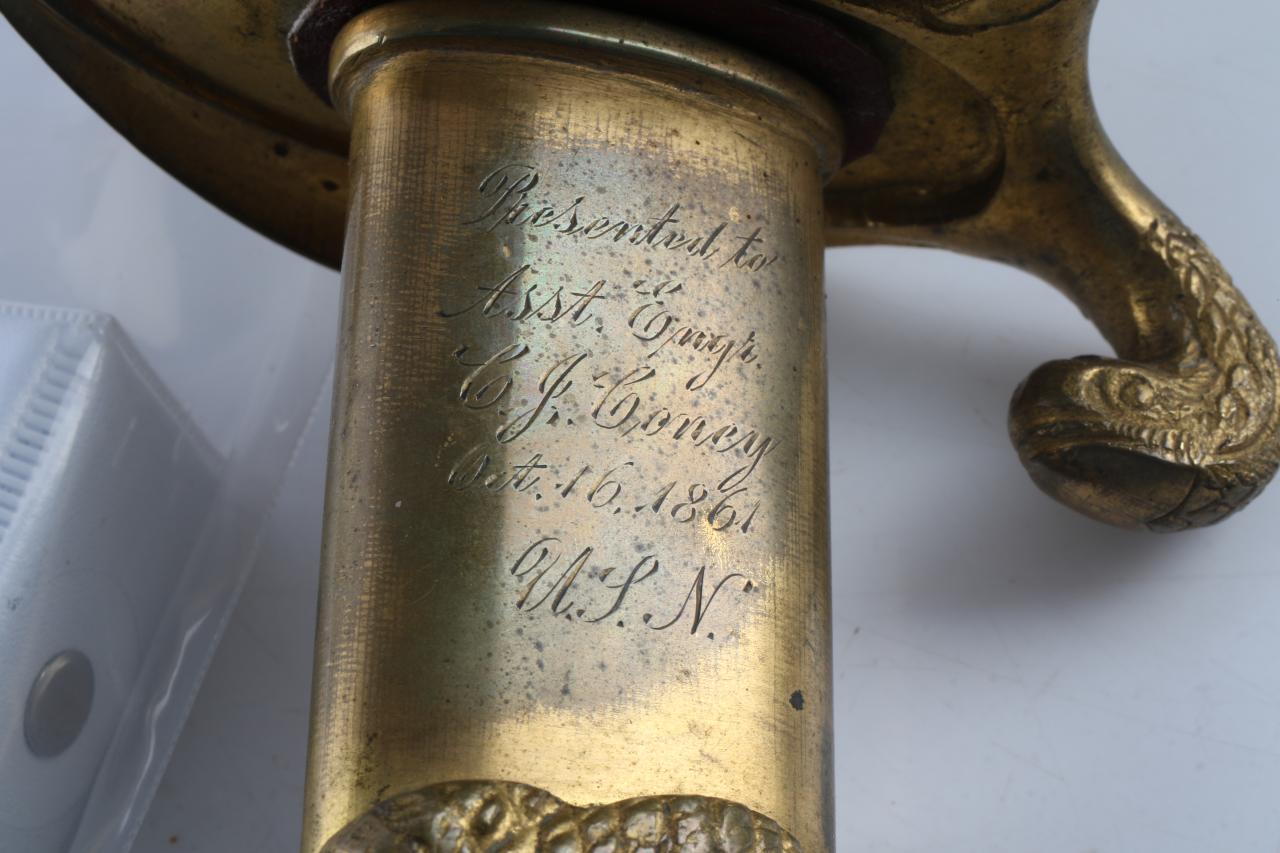 Presented to
Asst. Engr.
C. J. Coney
Oct. 16. 1861
U.S.N.